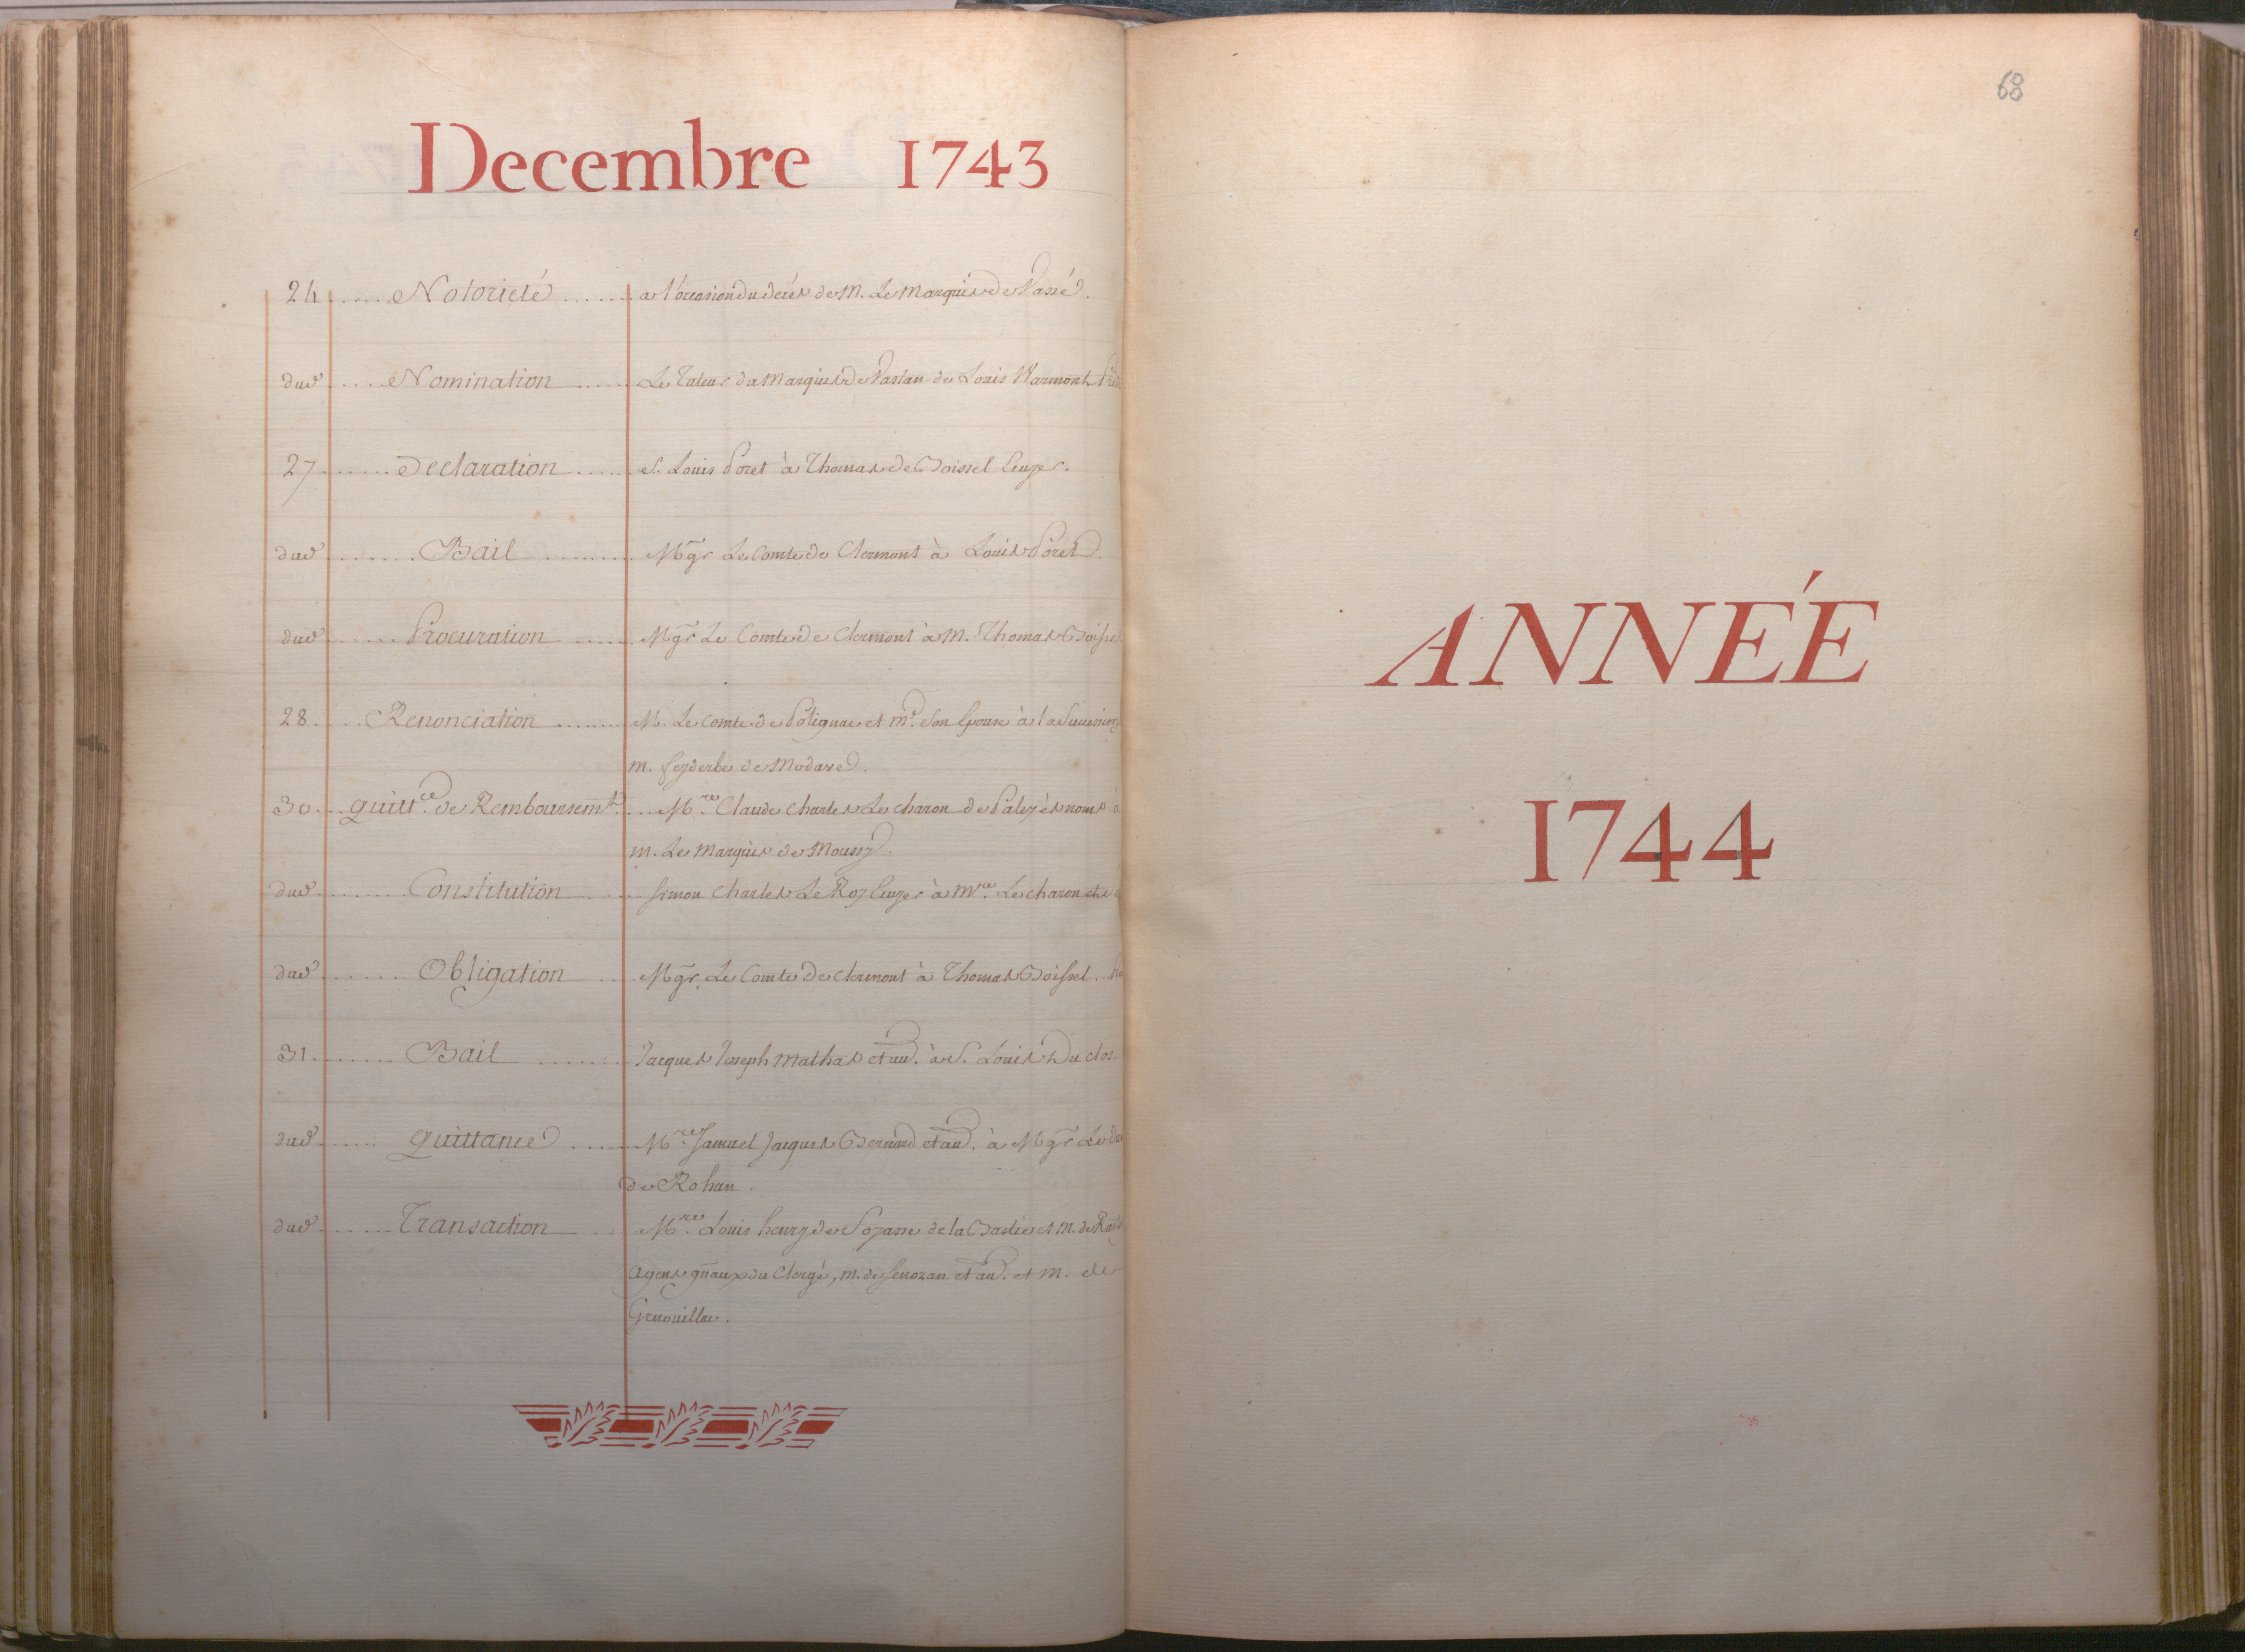 68
Decembre 1743
24 ..... Notorieté ....... a l'occasion du decés de M. Le Marquis de Vassé.
dud ..... Nomination ...... Le Tuteur du Marquis de Louis Warmont
27 ....... Declaration ...... S. Louis Poret à Thomas de Boissel Ecuyer.
dud ....... Bail ......... Mgr Le Comte de Clermont à Louis Poret.
dud ...... Procuration ...... Mgr Le Comte de Clermont à M. Thomas Boissel
28 ..... Renonciation ....... M. Le Comte de Polignac et Me. Son Epouse à la Succession
m. feyderbe de Modave.
30 ... quittce. de Remboursemt. ... Mre. Claude Charles Le Charon de Palez ès noms à
m. Le Marquis de Moussy.
dud ........ Constitution .... Simon Charles Le Roy Ecuyer à Mre. Le Charon
dud ....... Obligation .... Mgr Le Comte de Clermont à Thomas Boissel.
31 ....... Bail ....... Jacques Joseph Mathas et au. à S. Louis Du clos
dud ...... quittance ...... Mre. Samuel Jacques Bernard et au. à Mgr Le
de Rohan.
dud ...... Transaction .. Mre. Louis henry de de la et M. de
Agens gñaux du Clergé, m. de Senozan et au. et M. de
Grenouillac.
ANNÉE
1744